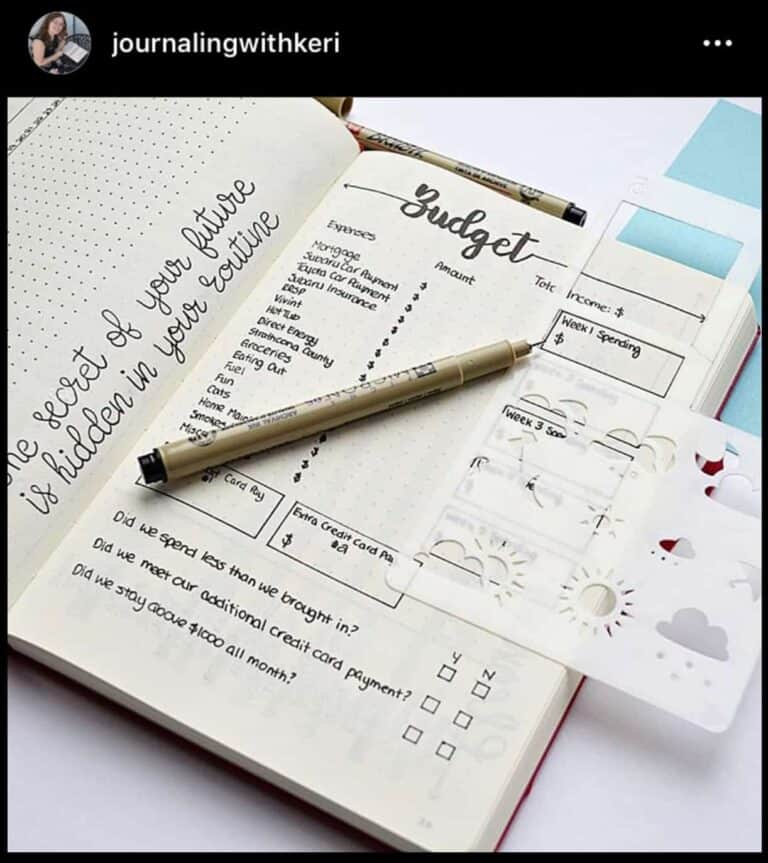 journalingwithkeri
secret of your future
is hidden in your routine
Budget
Expenses
Amount
Income: $
Mortgage
Subaru Car Payment
Toyota Car Payment
Subaru Insurance
RESP
Vivint
Hot Tub
Direct Energy
Strathcona County
Groceries
Eating Out
Fuel
Fun
Cats
Home
Smokes
$
$
$
$
$
$
$
$
$
$
$
Week 1 Spending
$
Week 3
Card Pay
#1
Extra Credit Card Pay
$ #2
Did we spend less than we brought in?
Did we meet our additional credit card payment?
Did we stay above $1000 all month?
Y N
ARCHIVAL INK